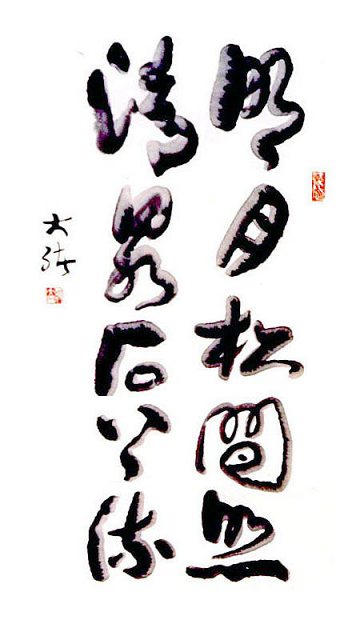 明月松間照
清泉石上流
大